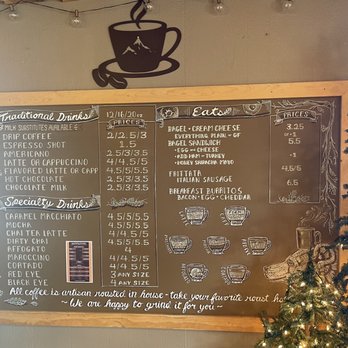 Traditional Drinks 12/16/20oz
PRICES
MILK SUBSTITUTES AVAILABLE
DRIP COFFEE 2/2.5/3
ESPRESSO SHOT 1.5
AMERICANO 2.5/3/3.5
LATTE OR CAPPUCCINO 4/4.5/5
FLAVORED LATTE OR CAPP 4.5/5/5.5
HOT CHOCOLATE 2.5/3/3.5
CHOCOLATE MILK 2.5/3/3.5
Specialty Drinks
CARAMEL MACCHIATO 4.5/5/5.5
MOCHA 4.5/5/5.5
CHAI TEA LATTE 4/4.5/5
DIRTY CHAI 4.5/5/5.5
AFFOGATO 4
MAROCCINO 4/4.5/5
CORTADO 4/4.5/5
RED EYE 3 ANY SIZE
BLACK EYE 4 ANY SIZE
Eats
PRICES
BAGEL + CREAM CHEESE 3.25
EVERYTHING PLAIN or GF or 5
BAGEL SANDWICH 5.5
EGG and CHEESE
ADD HAM or TURKEY
HONEY SRIRACHA MAYO
FRITTATA 4.5/5
ITALIAN SAUSAGE 6.5
BREAKFAST BURRITOS
BACON • EGG • CHEDDAR
All coffee is artisan roasted in house - take your favorite roast
~ We are happy to grind it for you ~